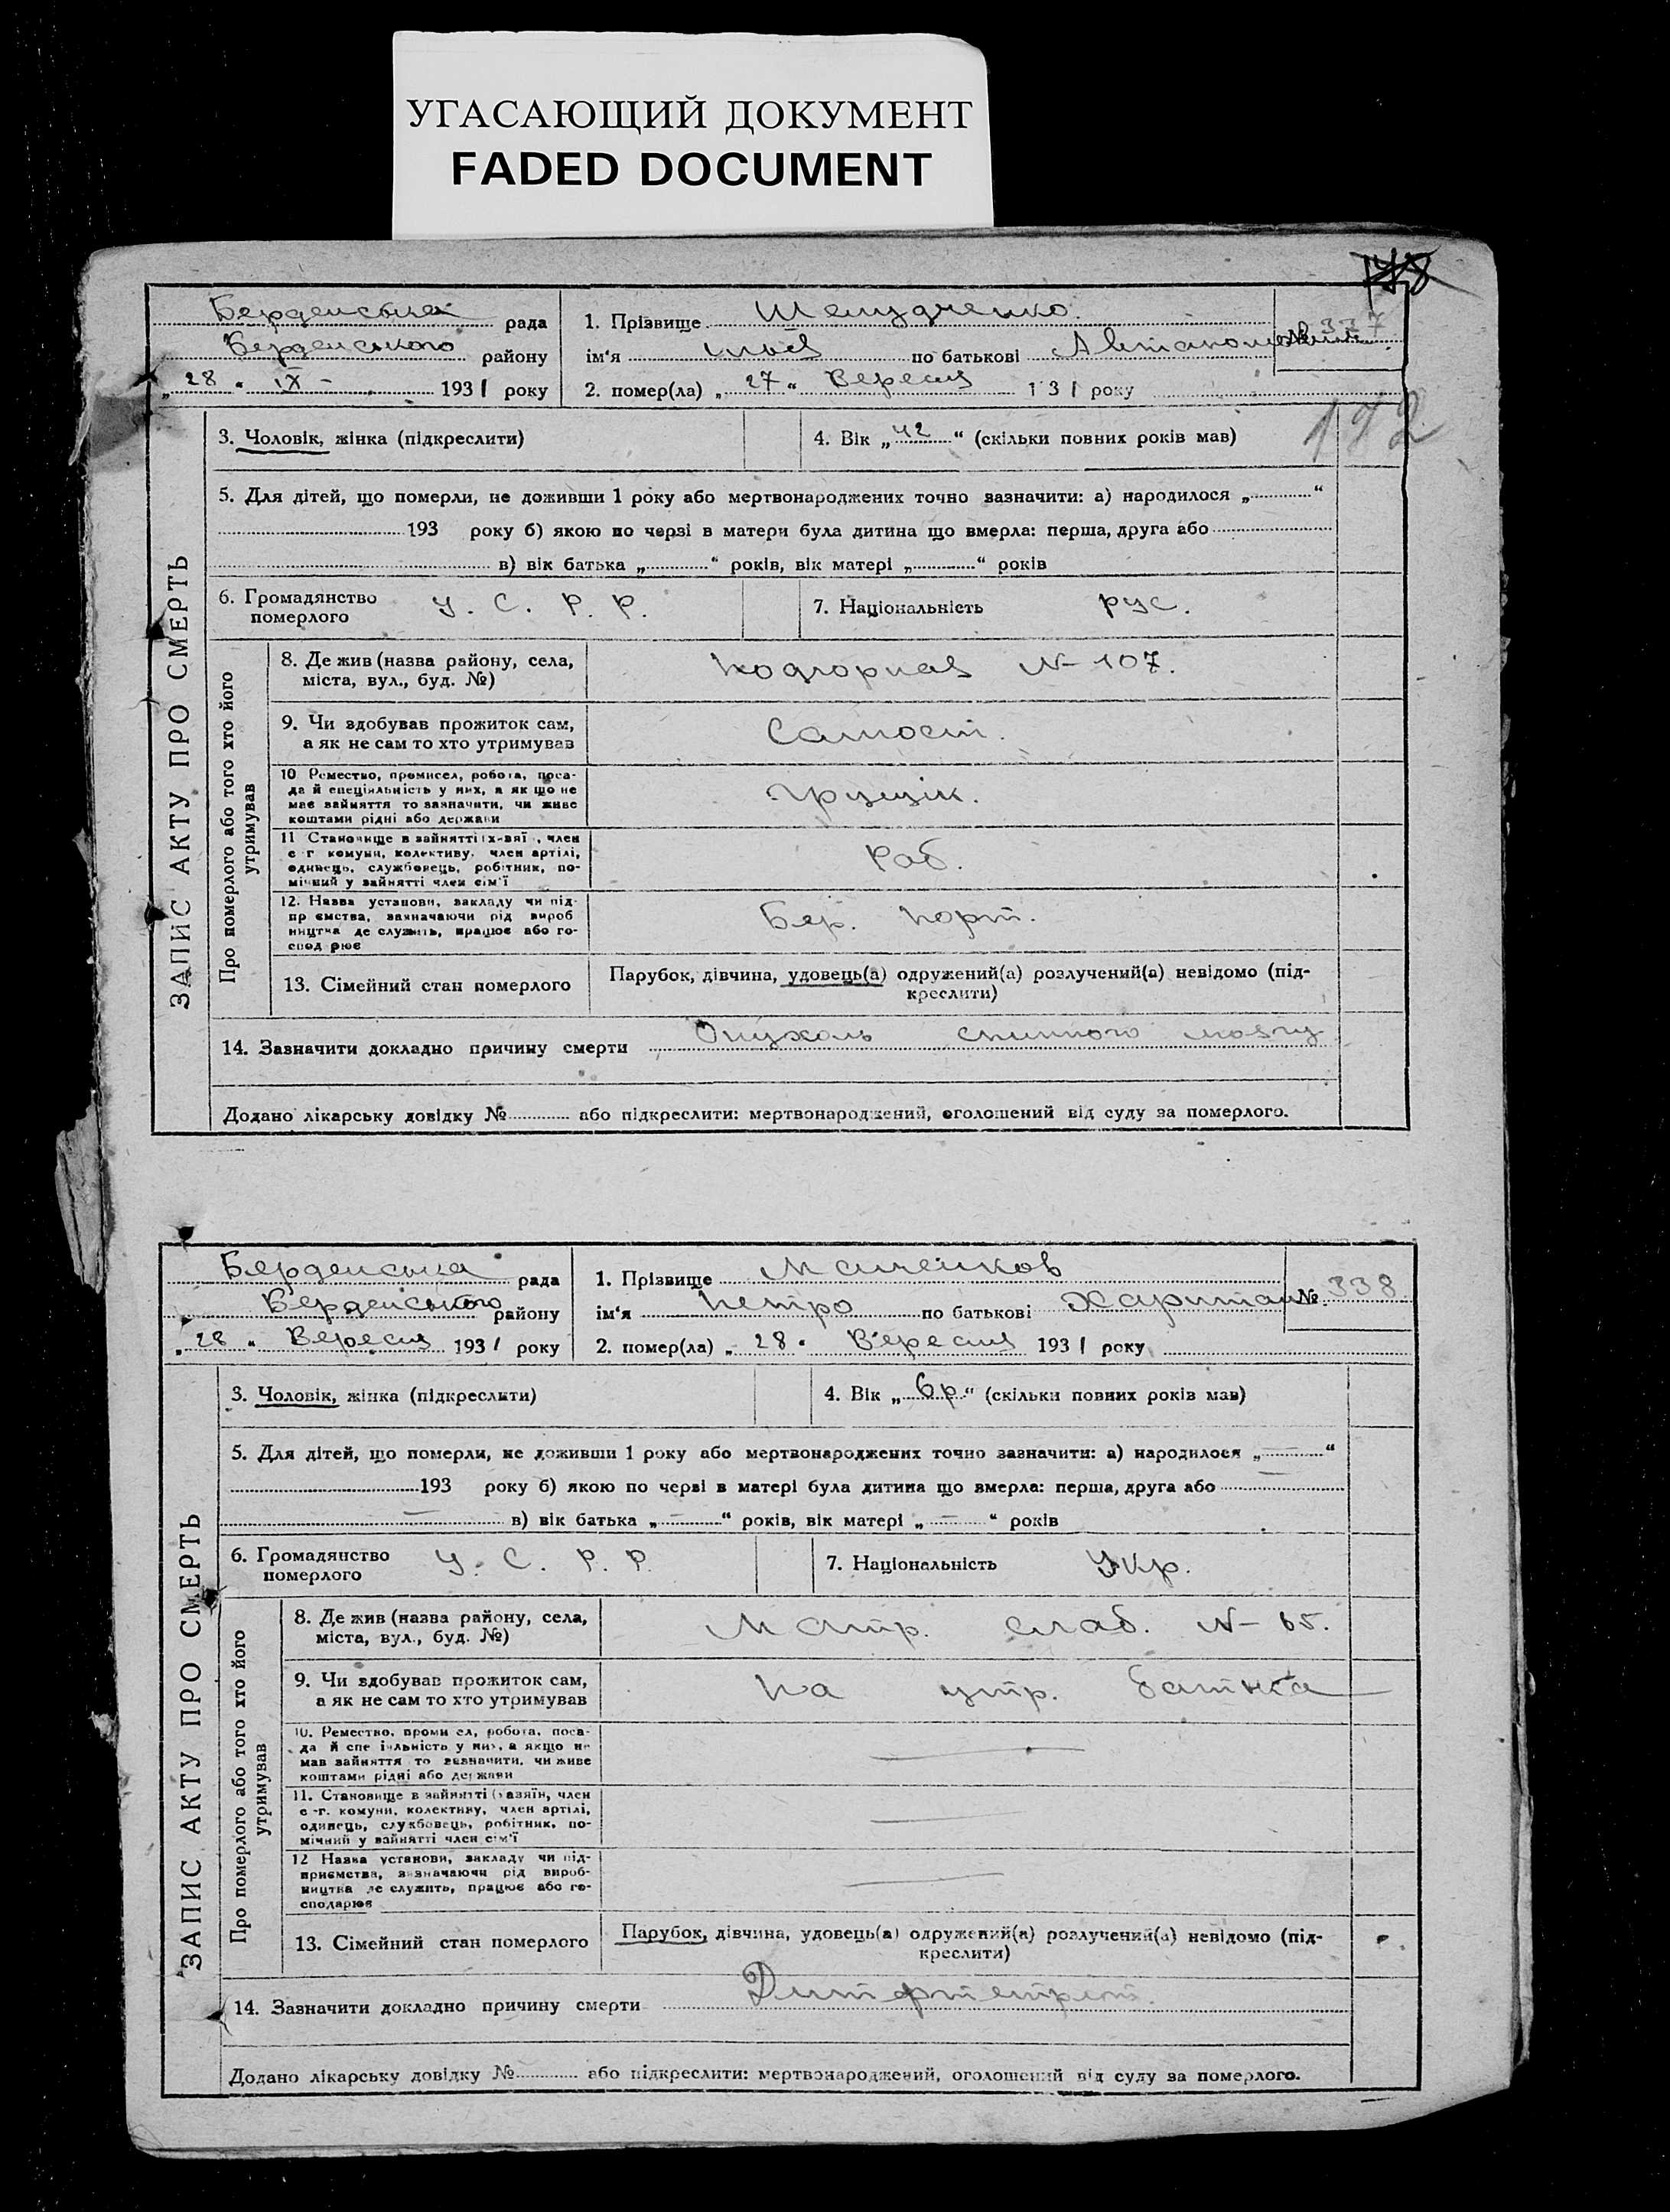 УГАСАЮЩИЙ ДОКУМЕНТ
FADED DOCUMENT
Берденська рада
Берденського району
„28“ IX 1931 року
1. Прізвище
ім'я Илья по батькові
2. помер(ла) „27“ Вересня 1 3 1 року
№ 337
172
ЗАПИС АКТУ ПРО СМЕРТЬ
3. Чоловік, жінка (підкреслити)
4. Вік „42“ (скільки повних років мав)
5. Для дітей, що померли, не доживши 1 року або мертвонароджених точно зазначити: а) народилося „ “
193 року б) якою по черзі в матери була дитина що вмерла: перша, друга або
в) вік батька „ “ років, вік матері „ “ років
6. Громадянство померлого У. С. Р. Р.
7. Національність рус.
Про померлого або того хто його утримував
8. Де жив (назва району, села,
міста, вул., буд. №)
Подгорная № 107.
9. Чи здобував прожиток сам,
а як не сам то хто утримував
Самост.
10 Ремество, промисел, робота, поса-
да й спеціяльність у них, а якщо не
має зайняття то зазначити, чи живе
коштами рідні або держави
Грущік.
11 Становище в зайнятті (х-зяї , член
с г комуни, колективу, член артілі,
одинець, службовець, робітник, по-
мічний у зайнятті член сім'ї
Раб.
12. Назва установи, закладу чи під-
пр ємства, зазначаючи рід вироб
ництва де служить, працює або го-
спод рює
Бер. порт.
13. Сімейний стан померлого
Парубок, дівчина, удовець(а) одружений(а) розлучений(а) невідомо (під-
креслити)
14. Зазначити докладно причину смерти Опухоль спинного мозгу
Додано лікарську довідку № або підкреслити: мертвонароджений, оголошений від суду за померлого.
Берденська рада
Берденського району
„28“ Вересня 1931 року
1. Прізвище
ім'я Петро по батькові Харитан
2. помер(ла) „28“ Вересня 1931 року
№ 338
ЗАПИС АКТУ ПРО СМЕРТЬ
3. Чоловік, жінка (підкреслити)
4. Вік „6р“ (скільки повних років мав)
5. Для дітей, що померли, не доживши 1 року або мертвонароджених точно зазначити: а) народилося „—“
193 року б) якою по черзі в матері була дитина що вмерла: перша, друга або —
— в) вік батька „—“ років, вік матері „—“ років
6. Громадянство померлого У. С. Р. Р.
7. Національність Укр.
Про померлого або того хто його утримував
8. Де жив (назва району, села,
міста, вул., буд. №)
слаб. № 65.
9. Чи здобував прожиток сам,
а як не сам то хто утримував
На утр. батька
10. Ремество, проми ел, робота, поса-
да й спе іяльність у них, а якщо не
мав зайняття то зазначити, чи живе
коштами рідні або держави
—
11. Становище в зайнятті (хазяїн, член
с -г. комуни, колективу, член артілі,
одинець, службовець, робітник, по-
мічний у зайнятті член сім'ї
—
12 Назва установи, закладу чи під-
приємства, зазначаючи рід вироб-
ництва де служить, працює або го-
сподарює
—
13. Сімейний стан померлого
Парубок, дівчина, удовець(а) одружений(а) розлучений(а) невідомо (під-
креслити)
14. Зазначити докладно причину смерти
Додано лікарську довідку № або підкреслити: мертвонароджений, оголошений від суду за померлого.